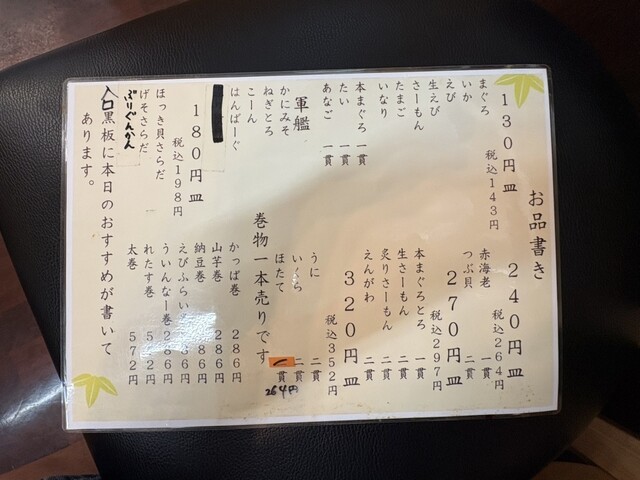 お品書き
130円皿
税込143円
まぐろ
いか
えび
生えび
さーもん
たまご
いなり
本まぐろ 一貫
たい 一貫
あなご 一貫
軍艦
かにみそ
ねぎとろ
こーん
はんばーぐ
180円皿
税込198円
ほっき貝さらだ
げそさらだ
ぶりぐんかん
240円皿
税込264円
赤海老 一貫
つぶ貝 二貫
270円皿
税込297円
本まぐろとろ 一貫
生さーもん 二貫
炙りさーもん 二貫
えんがわ 二貫
320円皿
税込352円
うに 二貫
いくら 二貫
ほたて 一貫
264円
巻物一本売りです
かっぱ巻 286円
山芋巻 286円
納豆巻 286円
えびふらい
ういんなー巻 286円
れたす巻 572円
太巻 572円
入口黒板に本日のおすすめが書いて
あります。